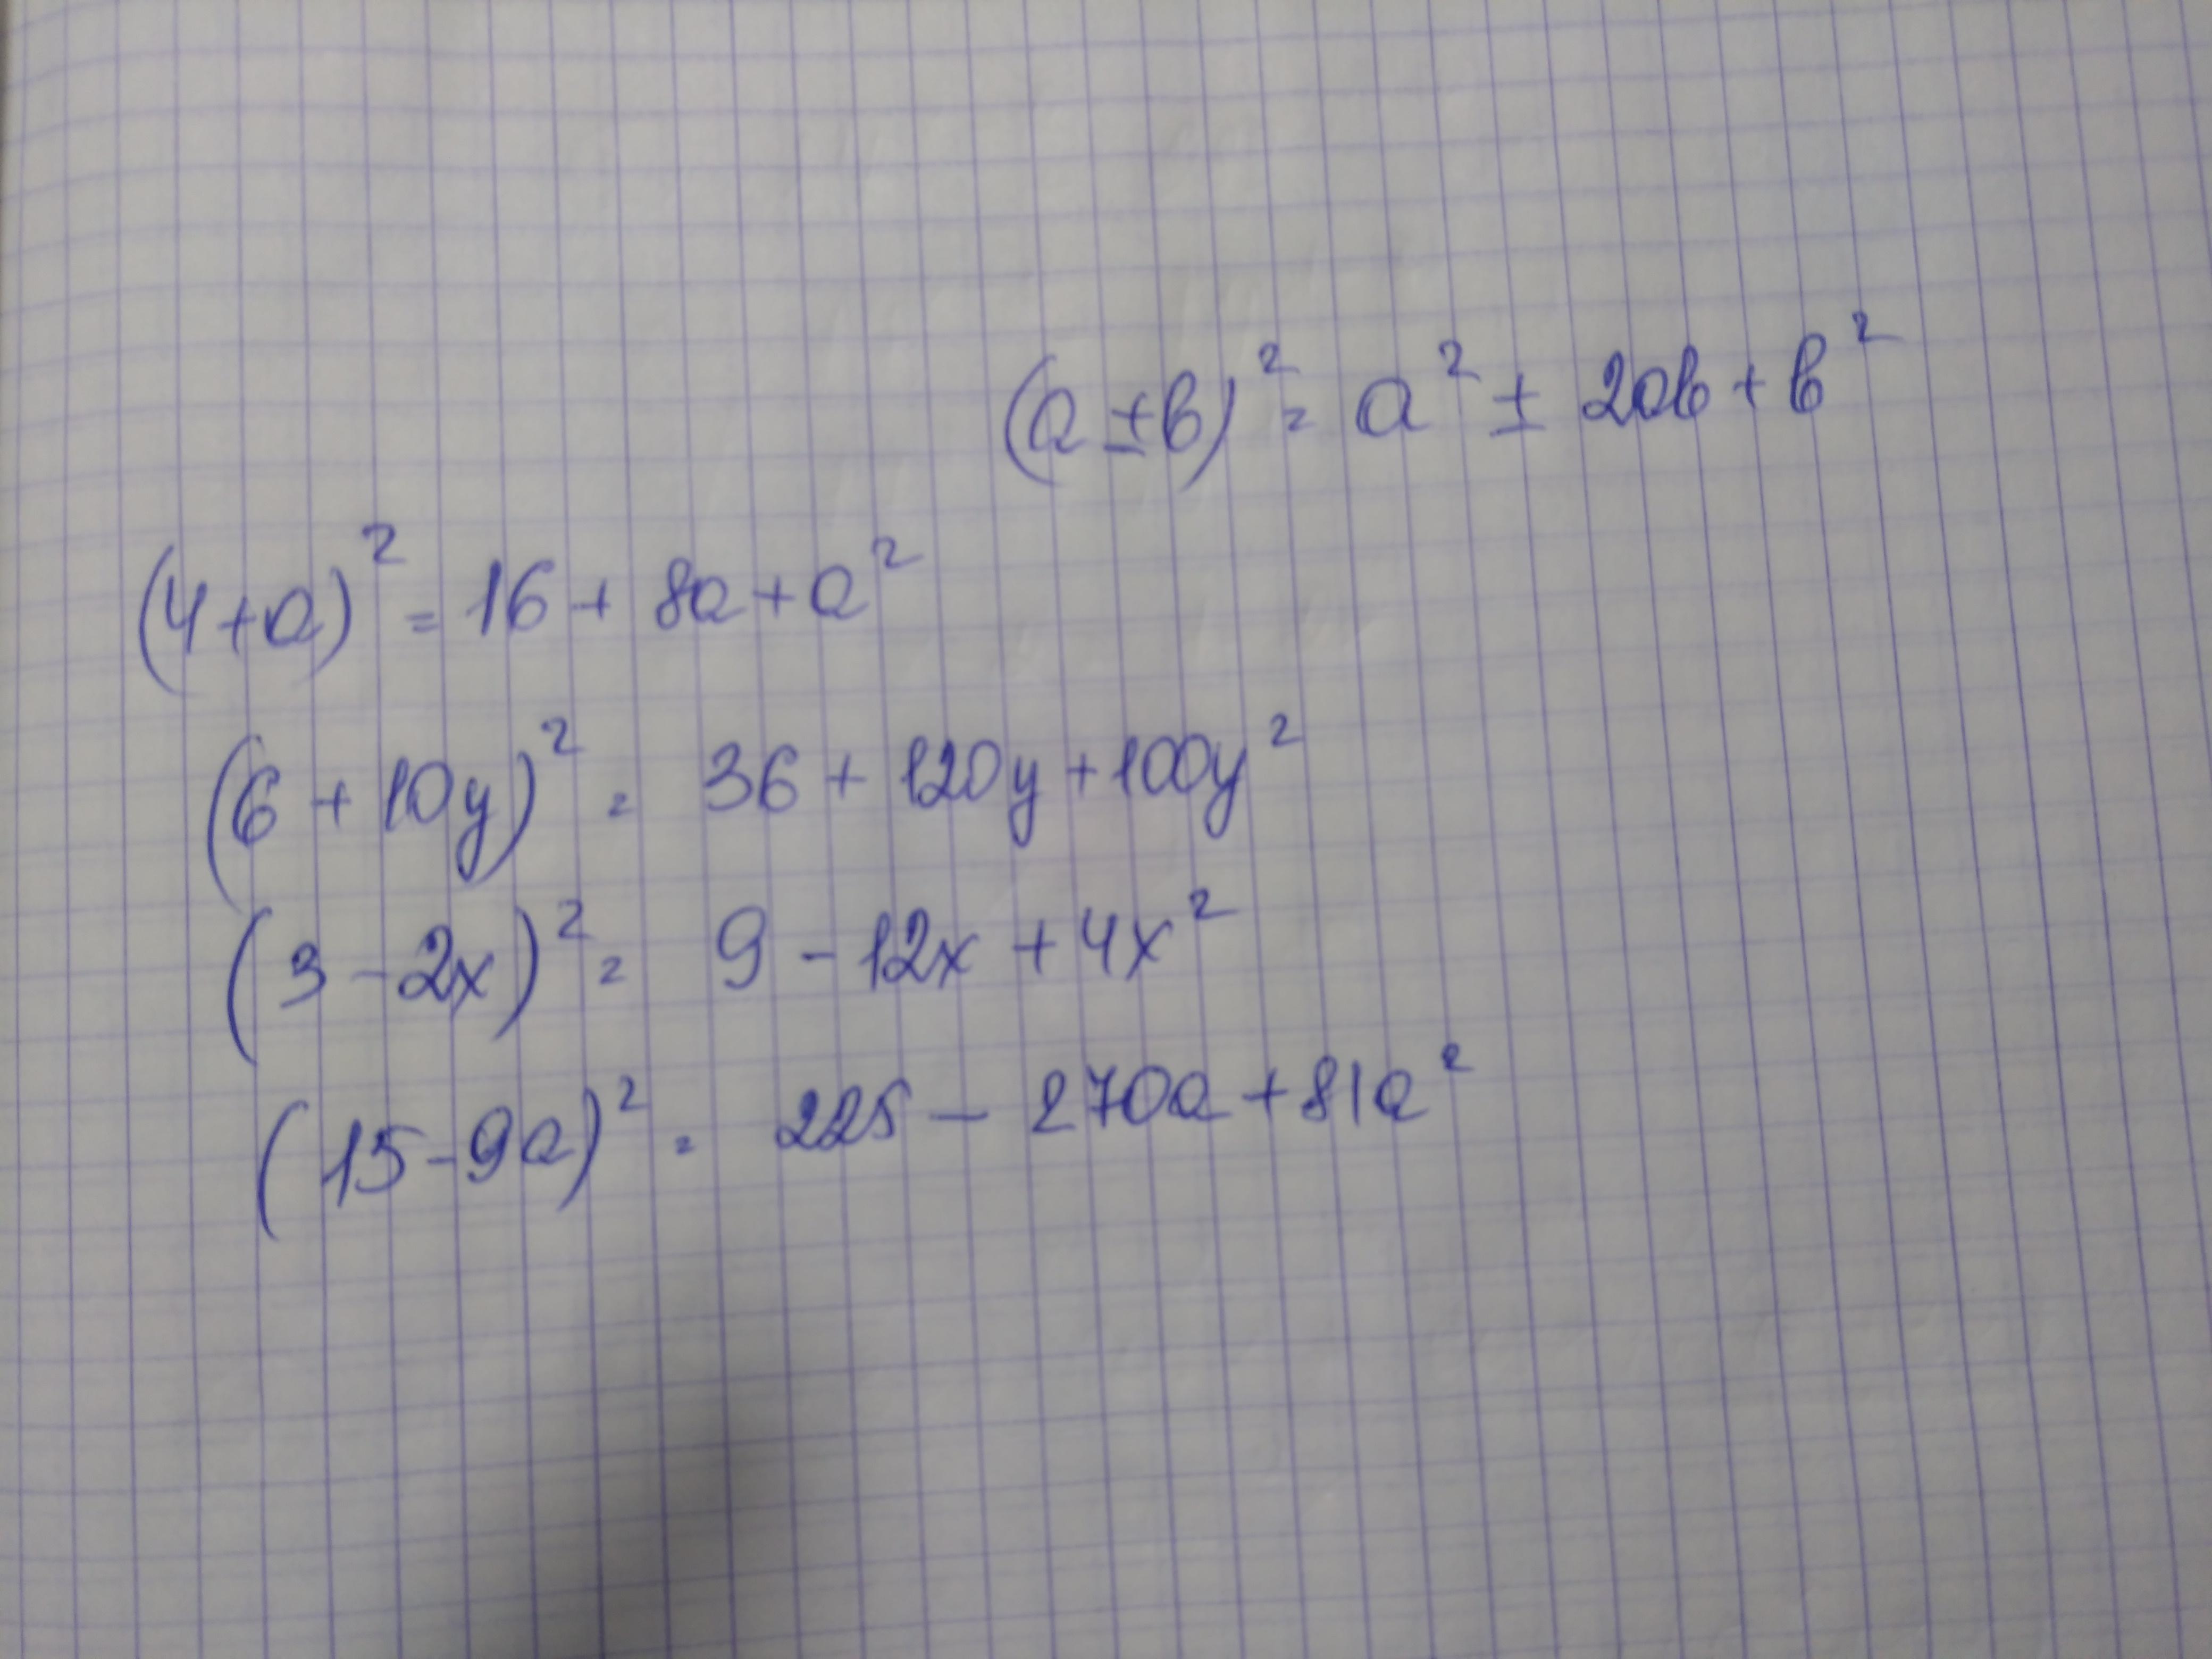 (a ± b)² = a² ± 2ab + b²
(4+a)² = 16 + 8a + a²
(6 + 10y)² = 36 + 120y + 100y²
(3 - 2x)² = 9 - 12x + 4x²
(15 - 9a)² = 225 - 270a + 81a²